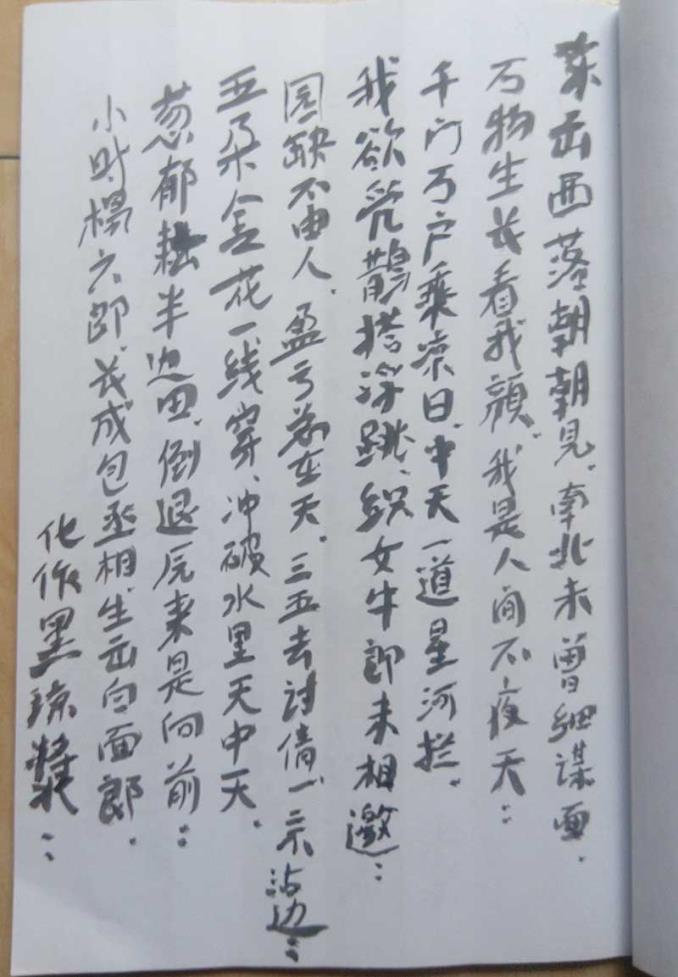 东出西落朝朝见.南北未曾细谋面.
万物生长看我颜.我是人间不夜天:
千门万户乘凉日.中天一道星河拦.
我欲凭鹊搭浮跳、织女牛郎未相邀:
圆缺不由人.盈亏为在天.三五去讨债.一示沾边:
五朵金花一线穿、冲破水里天中天.
葱郁半边田.倒退原来是向前:
小时杨六郎.长成包丞相.生出白面郎.
化作黑琼浆: